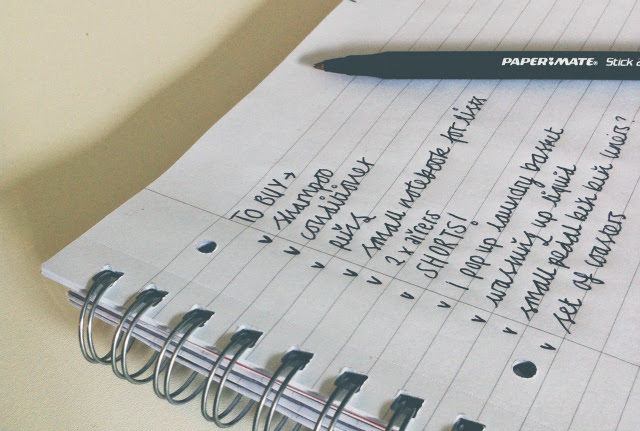 PAPER MATE® Stick
TO BUY →
v shampoo
v conditioner
v
v small notebook for lists
v 2 x airers
v SHORTS!
v 1 pop up laundry basket
v washing up liquid
v small pedal bin bin liners?
v set of coasters